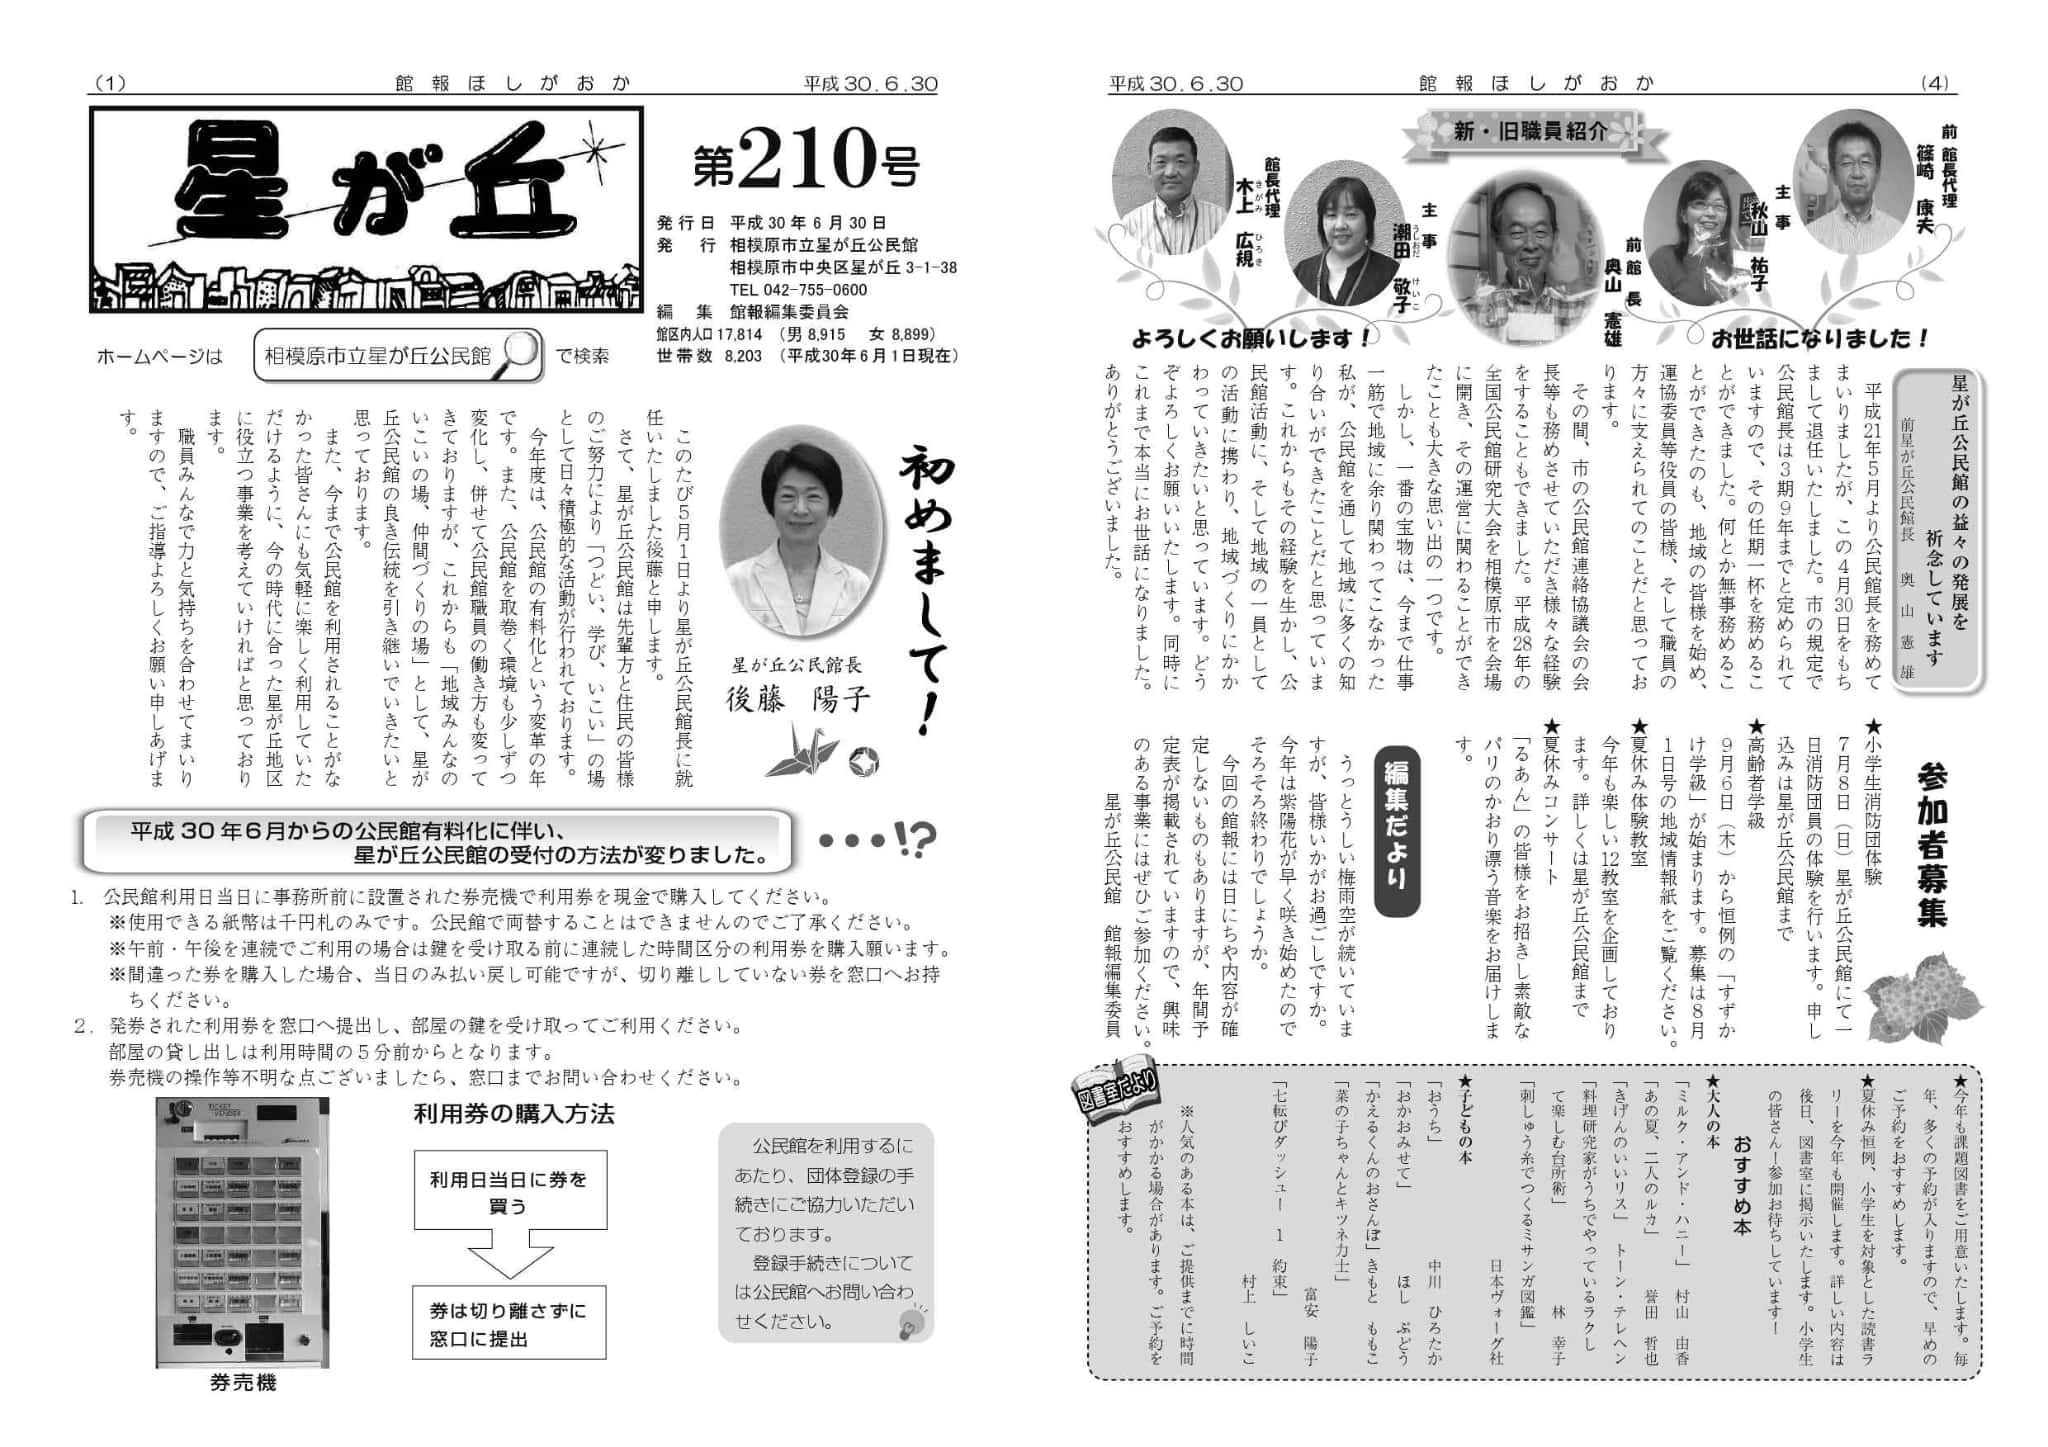 (1)
館報ほしがおか
平成30.6.30
星が丘
第210号
発行日 平成30年6月30日
発行 相模原市立星が丘公民館
相模原市中央区星が丘3-1-38
TEL 042-755-0600
編集 館報編集委員会
館区内人口17,814 (男8,915 女8,899)
世帯数 8,203 (平成30年6月1日現在)
ホームページは 相模原市立星が丘公民館 で検索
初めまして!
星が丘公民館長
後藤 陽子
このたび5月1日より星が丘公民館長に就
任いたしました後藤と申します。
さて、星が丘公民館は先輩方と住民の皆様
のご努力により「つどい、学び、いこい」の場
として日々積極的な活動が行われております。
今年度は、公民館の有料化という変革の年
です。また、公民館を取巻く環境も少しずつ
変化し、併せて公民館職員の働き方も変って
きておりますが、これからも「地域みんなの
いこいの場、仲間づくりの場」として、星が
丘公民館の良き伝統を引き継いでいきたいと
思っております。
また、今まで公民館を利用されることがな
かった皆さんにも気軽に楽しく利用していた
だけるように、今の時代に合った星が丘地区
に役立つ事業を考えていければと思っており
ます。
職員みんなで力と気持ちを合わせてまいり
ますので、ご指導よろしくお願い申しあげま
す。
平成30年6月からの公民館有料化に伴い、
星が丘公民館の受付の方法が変りました。
•••!?
1. 公民館利用日当日に事務所前に設置された券売機で利用券を現金で購入してください。
※使用できる紙幣は千円札のみです。公民館で両替することはできませんのでご了承ください。
※午前・午後を連続でご利用の場合は鍵を受け取る前に連続した時間区分の利用券を購入願います。
※間違った券を購入した場合、当日のみ払い戻し可能ですが、切り離ししていない券を窓口へお持
ちください。
2. 発券された利用券を窓口へ提出し、部屋の鍵を受け取ってご利用ください。
部屋の貸し出しは利用時間の5分前からとなります。
券売機の操作等不明な点ございましたら、窓口までお問い合わせください。
券売機
利用券の購入方法
利用日当日に券を
買う
券は切り離さずに
窓口に提出
公民館を利用するに
あたり、団体登録の手
続きにご協力いただい
ております。
登録手続きについて
は公民館へお問い合わ
せください。
平成30.6.30
館報ほしがおか
(4)
新・旧職員紹介
前館長代理
篠崎 康夫
主事
秋山 祐子
前館長
奥山 憲雄
主事
潮田 敬子
うしおだ けいこ
館長代理
木上 広規
きがみ ひろき
よろしくお願いします!
お世話になりました!
星が丘公民館の益々の発展を
祈念しています
前星が丘公民館長 奥山憲雄
平成21年5月より公民館長を務めて
まいりましたが、この4月30日をもち
まして退任いたしました。市の規定で
公民館長は3期9年までと定められて
いますので、その任期一杯を務めるこ
とができました。何とか無事務めるこ
とができたのも、地域の皆様を始め、
運協委員等役員の皆様、そして職員の
方々に支えられてのことだと思ってお
ります。
その間、市の公民館連絡協議会の会
長等も務めさせていただき様々な経験
をすることもできました。平成28年の
全国公民館研究大会を相模原市を会場
に開き、その運営に関わることができ
たことも大きな思い出の一つです。
しかし、一番の宝物は、今まで仕事
一筋で地域に余り関わってこなかった
私が、公民館を通して地域に多くの知
り合いができたことだと思っていま
す。これからもその経験を生かし、公
民館活動に、そして地域の一員として
の活動に携わり、地域づくりにかか
わっていきたいと思っています。どう
ぞよろしくお願いいたします。同時に
これまで本当にお世話になりました。
ありがとうございました。
参加者募集
★小学生消防団体験
7月8日(日)星が丘公民館にて一
日消防団員の体験を行います。申し
込みは星が丘公民館まで
★高齢者学級
9月6日(木)から恒例の「すずか
け学級」が始まります。募集は8月
1日号の地域情報紙をご覧ください。
★夏休み体験教室
今年も楽しい12教室を企画しており
ます。詳しくは星が丘公民館まで
★夏休みコンサート
「るあん」の皆様をお招きし素敵な
パリのかおり漂う音楽をお届けしま
す。
編集だより
うっとうしい梅雨空が続いていま
すが、皆様いかがお過ごしですか。
今年は紫陽花が早く咲き始めたので
そろそろ終わりでしょうか。
今回の館報には日にちや内容が確
定しないものもありますが、年間予
定表が掲載されていますので、興味
のある事業にはぜひご参加ください。
星が丘公民館 館報編集委員
図書室だより
★今年も課題図書をご用意いたします。毎
年、多くの予約が入りますので、早めの
ご予約をおすすめします。
★夏休み恒例、小学生を対象とした読書ラ
リーを今年も開催します。詳しい内容は
後日、図書室に掲示いたします。小学生
の皆さん!参加お待ちしています!
おすすめ本
★大人の本
「ミルク・アンド・ハニー」 村山 由香
「あの夏、二人のルカ」 誉田 哲也
「きげんのいいリス」 トーン・テレヘン
「料理研究家がうちでやっているラクし
て楽しむ台所術」 林 幸子
「刺しゅう糸でつくるミサンガ図鑑」
日本ヴォーグ社
★子どもの本
「おうち」 中川 ひろたか
「おかおみせて」 ほし ぶどう
「かえるくんのおさんぽ」きもと ももこ
「菜の子ちゃんとキツネ力士」
富安 陽子
「七転びダッシュ! 1 約束」
村上 しいこ
※人気のある本は、ご提供までに時間
がかかる場合があります。ご予約を
おすすめします。